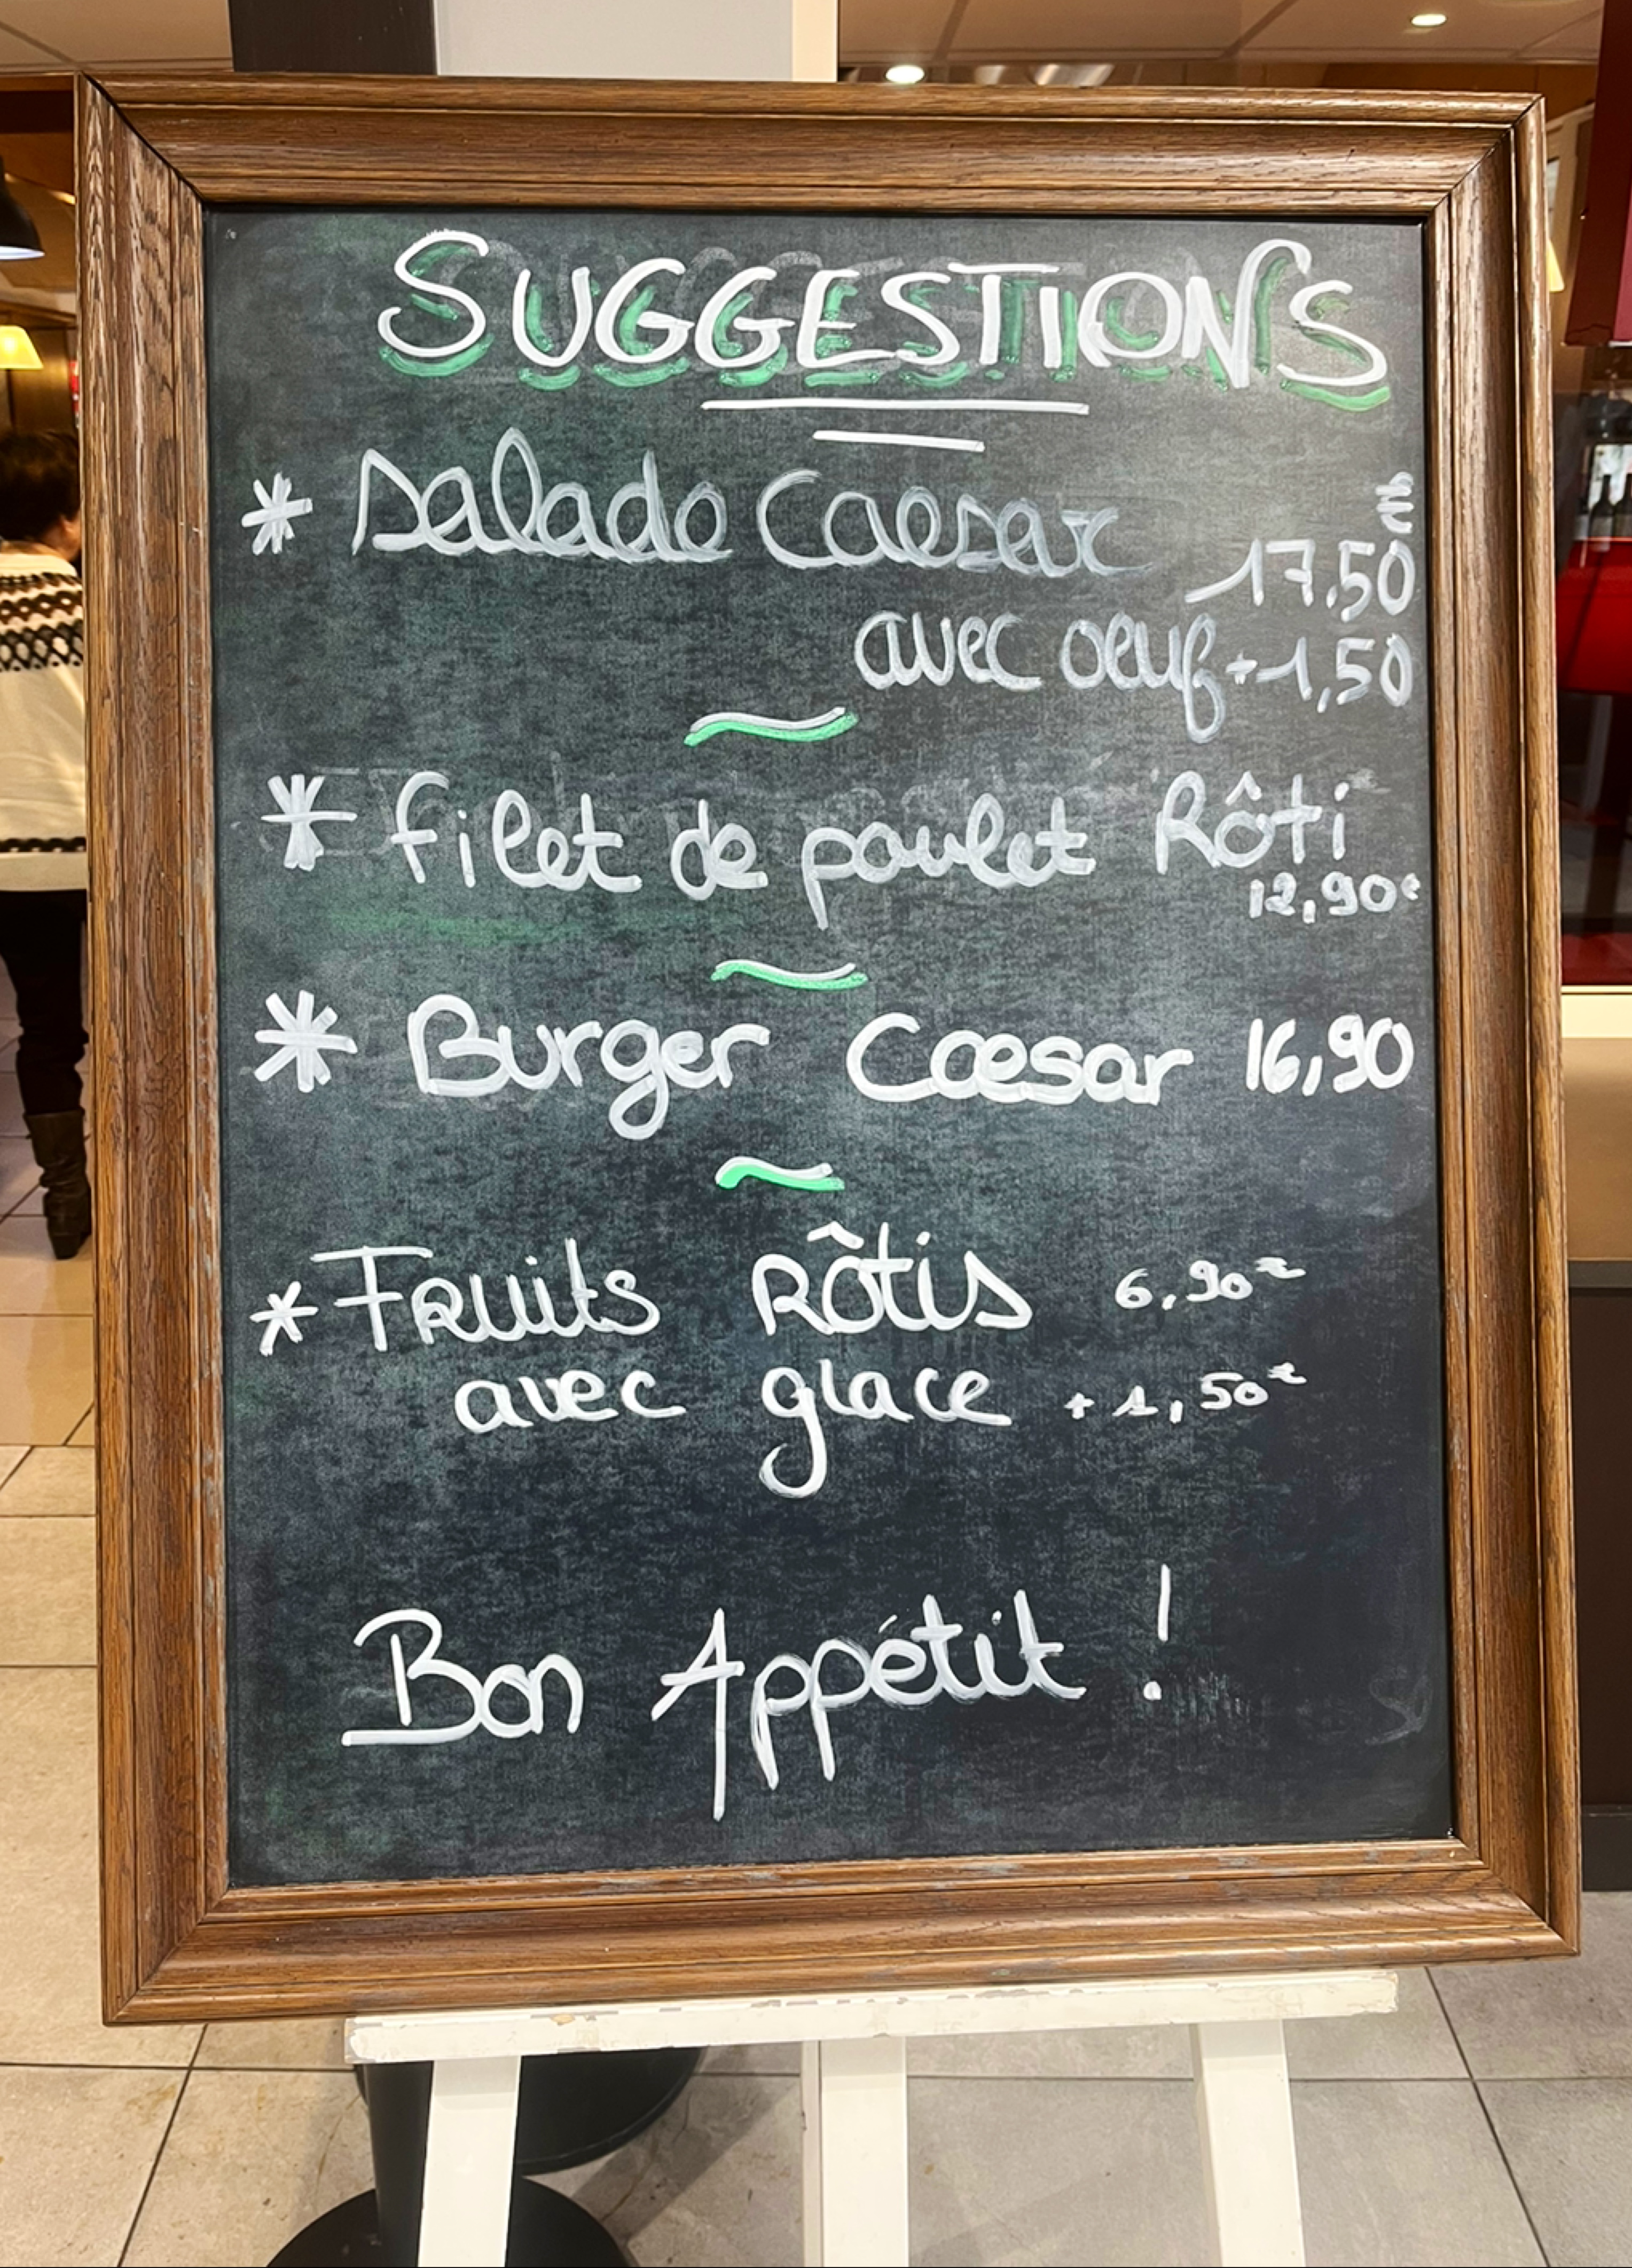 SUGGESTIONS
* Salade Caesar €
17,50
avec oeuf +1,50
* filet de poulet Rôti
12,90€
* Burger Caesar 16,90
* FRuits RÔtis 6,90€
avec glace + 1,50€
Bon Appétit !